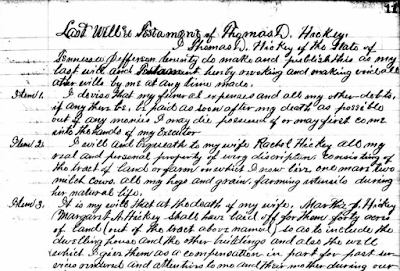 11
Last Will & Testament of Thomas D. Hickey.
I Thomas D. Hickey of the State of
Tennessee Jefferson County do make and publish this as my
last will and Testament herby revoking and making void all
other wills by me at any time made.
Item 1. I devise that my funeral expenses and all my other debts,
if any there be, be paid as soon after my death as possible
out of any monies I may die possessed of or may first come
into the hands of my Executor
Item 2. I will and bequeath to my wife Rachel Hickey all my
real and personal property of every discription, consisting of
the tract of land or farm on which I now live, one mare two
milch cows all my hogs and grain, farming utensils during
her natural life.
Item 3. It is my will that at the death of my wife, Martha J. Hickey
Margaret A. Hickey shall have laid off for them forty acres
of land (out of the tract above named) so as to include the
dwelling house and the other buildings and also the well
which I give them as a compensation in part for past ser
vices rendered and attention to me and their mother during our